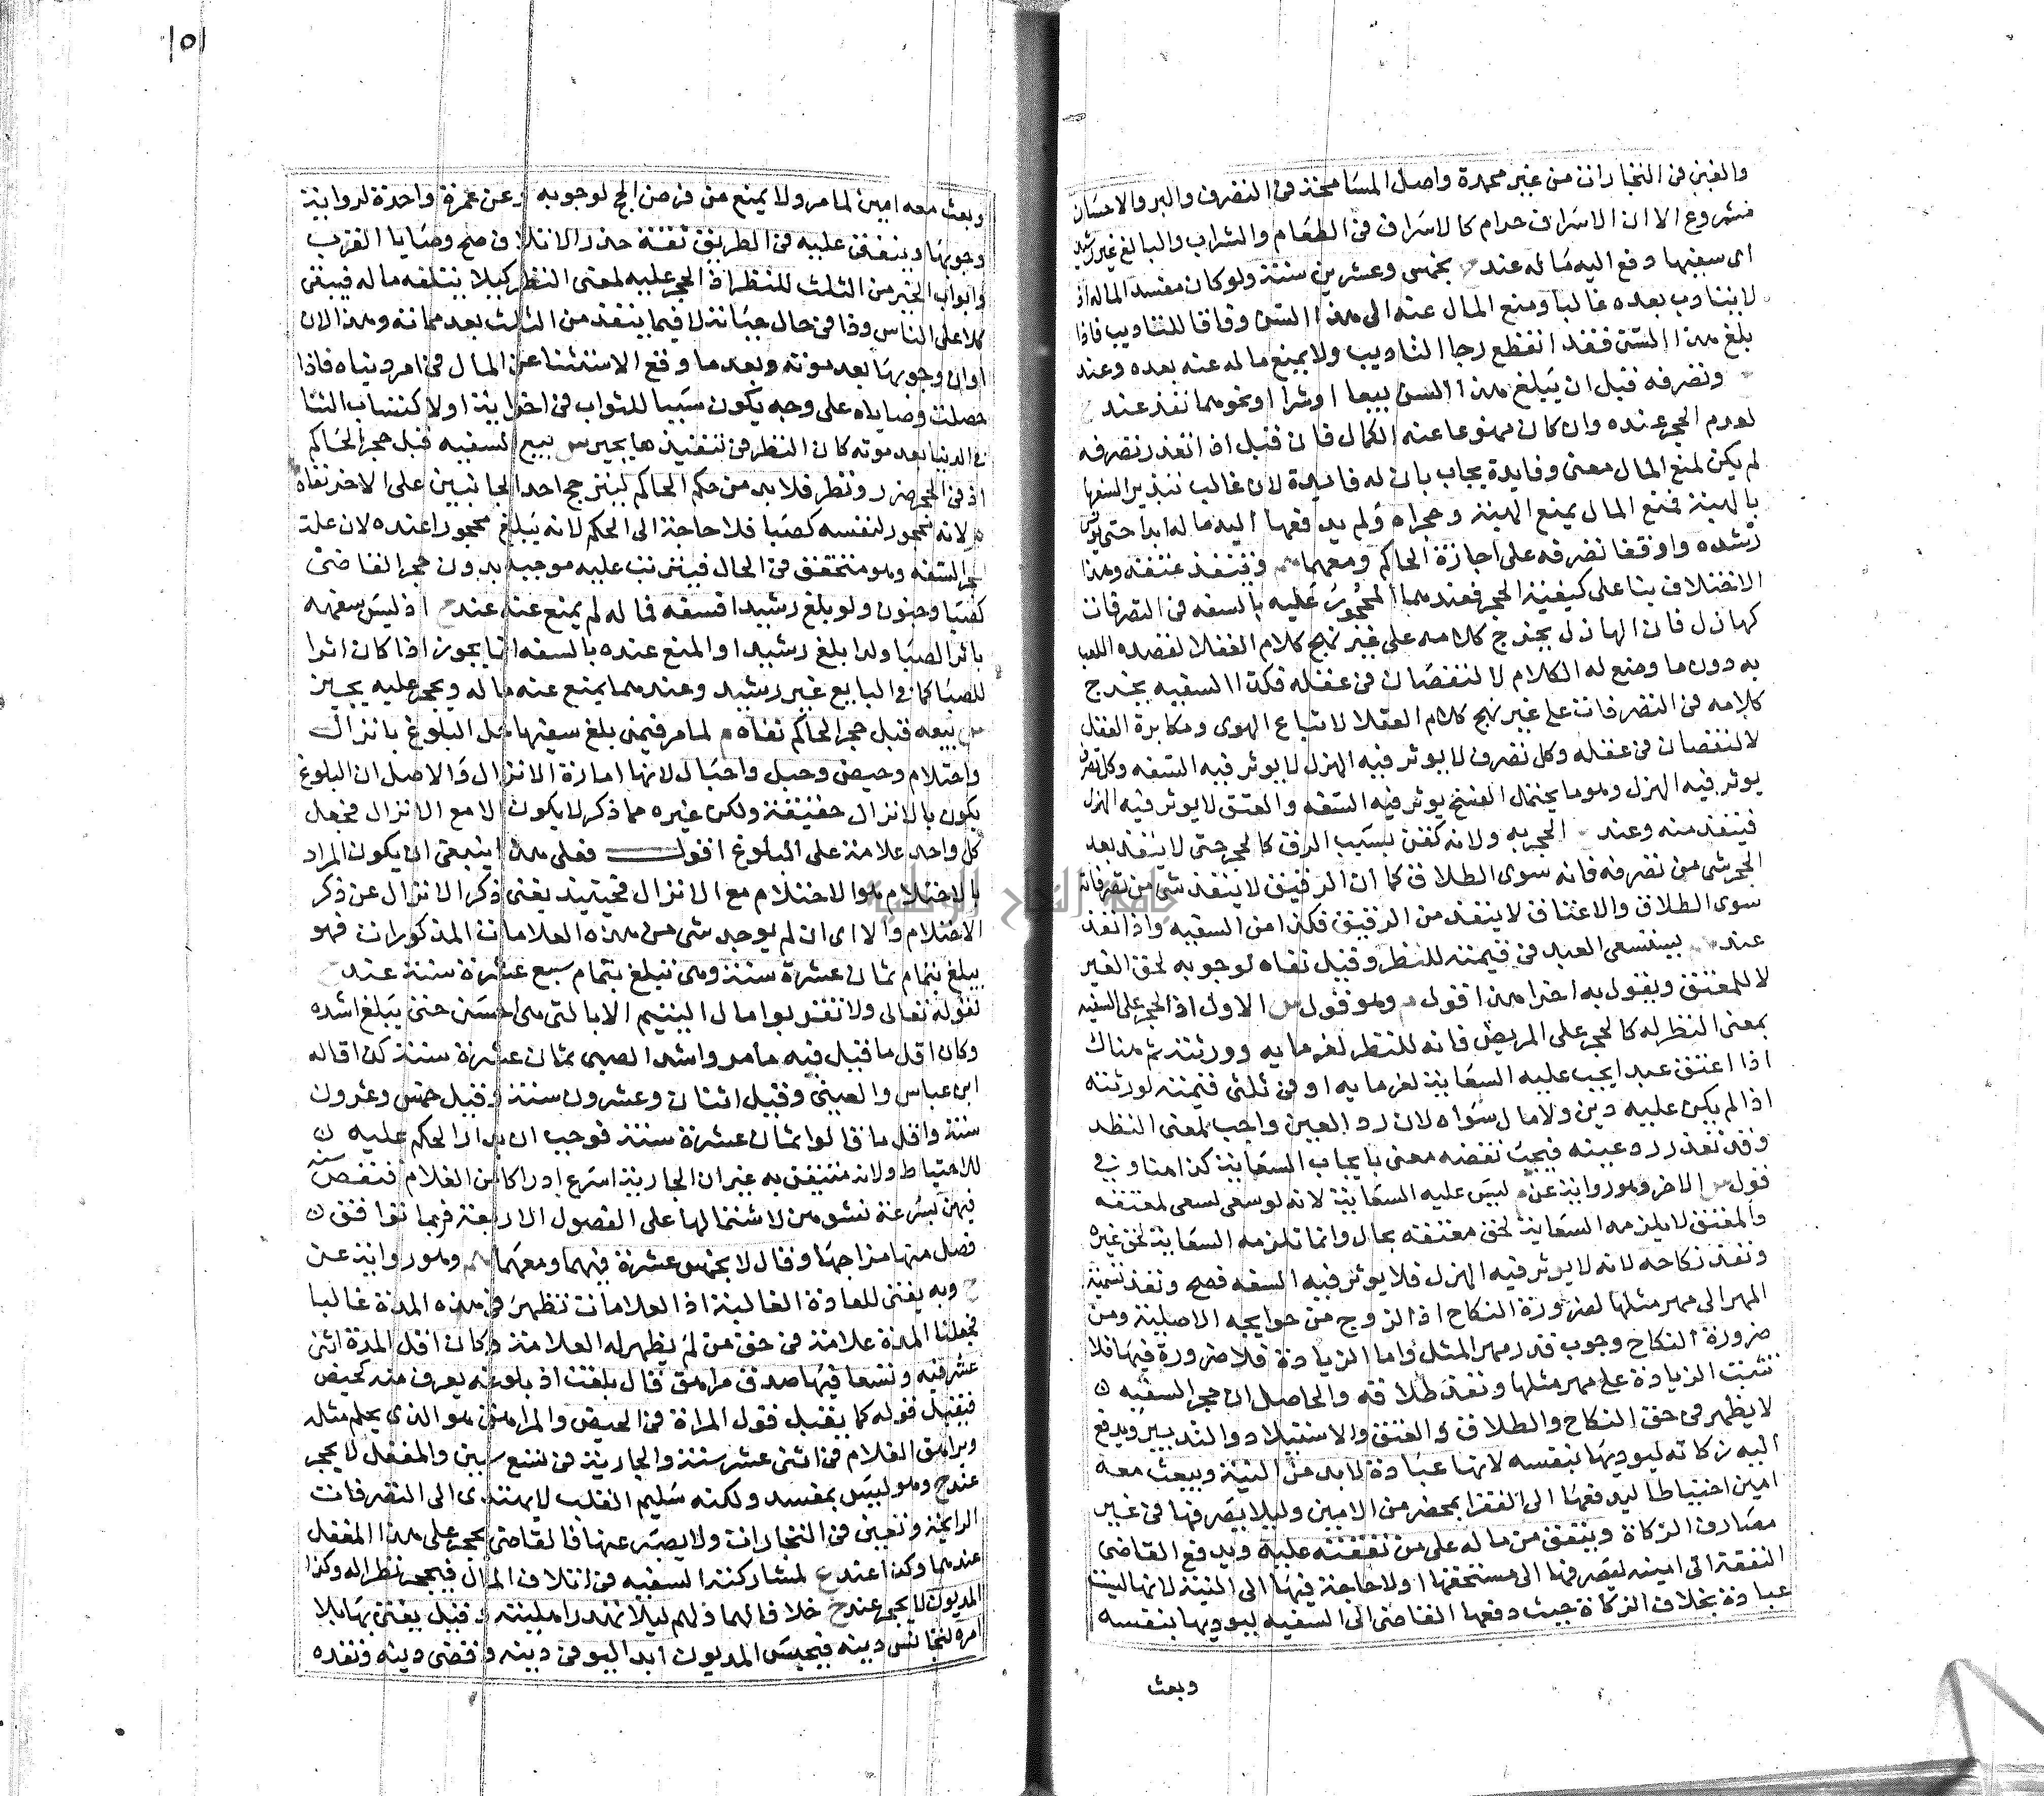 والغبن فى التجارات من غير محمدة واصل المسامحة فى التصرف والبر والاحسان
مشروع الا ان الاسراف حرام كالاسراف فى الطعام والشراب والبالغ غير رشيد
اى سفيها دفع اليه ماله عند بخمس وعشرين سنة ولو كان مفسد المال اذ
لا يتادب بعده غالبا ومنع المال عنه الى هذا السن وفاقا للتاديب فاذا
بلغ هذا السن فقد انقطع رجا التاديب ولا يمنع ماله عنه بعده وعند
وتصرفه قبل ان يبلغ هذا السن بيعا او شرا او نحوهما نفذ عند
لعدم الحجر عنده وان كان ممنوعا عنه الكمال فان قيل اذا نفذ تصرفه
لم يكن لمنع المال معنى وفايدة يجاب بان له فايدة لان غالب تبذير السفها
بالهبة فمنع المال يمنع الهبة وحجراه ولم يدفعها اليه ماله ابدا حتى يونس
رشده واوقفا تصرفه على اجازة الحاكم ومعهما وينفذ عتقه وهذا
الاختلاف بنا على كيفية الحجر فعندهما المحجور عليه بالسفه فى التصرفات
كهازل فان الهازل يخرج كلامه على غير نهج كلام العقلا لقصده اللعب
به دون ما وضع له الكلام لا لنقصان فى عقله فكذا السفيه يخرج
كلامه فى التصرفات على غير نهج كلام العقلا لاتباع الهوى ومكابرة العقل
لا لنقصان فى عقله وكل تصرف لا يوثر فيه الهزل لا يوثر فيه السفه وكل تصرف
يوثر فيه الهزل وهو ما يحتمل الفسخ يوثر فيه السفه والعتق لا يوثر فيه الهزل
فينفذ منه وعند الحجر به ولانه كفن بسبب الرق كالحجر حتى لا ينفذ بعد
الحجر شى من تصرفه فانه سوى الطلاق كما ان الرقيق لا ينفذ شى من تصرفاته
سوى الطلاق والاعتاق لا ينفذ من الرقيق فكذا من السفيه واذا نفذ
عند يستسعى العبد فى قيمته للنظر وقيل نفاه لوجوبه لحق الغير
لا للمعتق وبقول به اخرا هذا اقول وهو قول الاول اذ الحجر على السفيه
بمعنى النظر له كالحجر على المريض فانه للنظر لغرمايه وورثته ثم هناك
اذا اعتق عبدا يجب عليه السعاية لغرمايه او فى ثلثى قيمته لورثته
اذا لم يكن عليه دين ولا مال سواه لان رد العين واجب لمعنى النظر
وقد تعذر رد عينه فيجب نقضه معنى بايجاب السعاية كذا هنا وفى
قول الاخر وهو رواية عن ليس عليه السعاية لانه لو سعى لسعى لمعتقه
والمعتق لا يلزمه السعاية لحق معتقه بحال وانما تلزمه السعاية لحق غيره
ونفذ نكاحه لانه لا يوثر فيه الهزل فلا يوثر فيه السفه فصح ونفذ تسمية
المهر الى مهر مثلها لضرورة النكاح اذ الزوج من حوايجه الاصلية ومن
ضرورة النكاح وجوب قدر مهر المثل واما الزيادة فلا ضرورة فيها فلا
تثبت الزيادة على مهر مثلها ونفذ طلاقه والحاصل ان حجر السفيه
لا يظهر فى حق النكاح والطلاق والعتق والاستيلاد والتدبير ويدفع
اليه زكاته ليوديها بنفسه لانها عبادة لا بد من النية ويبعث معه
امين احتياطا ليدفعها الى الفقرا بمحضر من الامين وليلا يصرفها فى غير
مصارف الزكاة وينفق من ماله على من نفقته عليه ويدفع القاضى
النفقة الى امينه ليصرفها الى مستحقها اولا حاجة فيها الى النية لانها ليست
عبادة بخلاف الزكاة حيث دفعها القاضى الى السفيه ليوديها بنفسه
وبعث
١٥١
وبعث معه امين لما مر ولا يمنع من فرض الحج لوجوبه وعن عمرة واحدة لرواية
وجوبها وينفق عليه فى الطريق ثقة حذر الاتلاف صح وصايا القرب
وابواب الخير من الثلث للنظر اذ الحجر عليه لمعنى النظر كيلا يتلفه ماله فيبقى
كلا على الناس وذا فى حال حياته لا فيما ينفذ من الثلث بعد مماته وهذا لان
اوان وجوبها بعد موته وبعد ما وقع الاستغنا عن المال فى امر دنياه فاذا
حصلت وصاياه على وجه يكون سببا للثواب فى اخرايته او لاكتساب الثنا
فى الدنيا بعد موته كان النظر فى تنفيذها يجير بيع السفيه قبل حجر الحاكم
اذ فى الحجر ضرر ونظر فلا بد من حكم الحاكم ليترجح احد الجانبين على الاخر نفاه
لانه محجور لنفسه كصبا فلا حاجة الى الحكم لانه يبلغ محجورا عنده لان علة
الحجر السفه وهو متحقق فى الحال فيترتب عليه موجبه بدون حجر القاضى
كصبا وجنون ولو بلغ رشيدا فسفه فماله لم يمنع عنه عند اذ ليس سفهه
باثر الصبا ولدا بلغ رشيدا والمنع عنده بالسفه انما يجوز اذا كان اثرا
للصبا كما فى البايع غير رشيد وعندهما يمنع عنه ماله ويحجر عليه يجيز
بيعه قبل حجر الحاكم نفاه م لما مر فيمن بلغ سفيها حل البلوغ بانزال
واحتلام وحيض وحبل واحبال لانها امارة الانزال والاصل ان البلوغ
يكون بالانزال حقيقة ولكن غيره مما ذكر لا يكون الا مع الانزال فجعل
كل واحد علامة على البلوغ اقول فعلى هذا ينبغى ان يكون المراد
بالاحتلام هو الاحتلام مع الانزال فحينيذ يغنى ذكر الانزال عن ذكر
الاحتلام والا اى ان لم يوجد شى من هذه العلامات المذكورات فهو
يبلغ بتمام ثمان عشرة سنة وهى تبلغ بتمام سبع عشرة سنة عند
لقوله تعالى ولا تقربوا مال اليتيم الا بالتى هى احسن حتى يبلغ اشده
وكان اقل ما قيل فيه ما مر واشد الصبى ثمان عشرة سنة كذا قاله
ابن عباس والعينى وقيل اثنان وعشرون سنة وقيل خمس وعشرون
سنة واقل ما قالوا ثمان عشرة سنة فوجب ان يدار الحكم عليه
للاحتياط ولانه متيقن به غير ان الجارية اسرع ادراكا من الغلام فنقص سنة
فيهن لسرعة نشوهن لاشتمالها على الفصول الاربعة فربما توافق
فصل منها مزاجها وقال لا بخمس عشرة فيهما ومعهما وهو رواية عن
ح وبه يفتى للعادة الغالبة اذ العلامات تظهر فى هذه المدة غالبا
فجعلنا المدة علامة فى حق من لم يظهر له العلامة وكان اقل المدة اثنى
عشر فيه وتسعا فيها صدق مراهق قال بلغت اذ بلوغه يعرف منه كحيض
فيقبل قوله كما يقبل قول المراة فى الحيض والمراهق هو الذى يحلم مثله
ويراهق الغلام فى اثنى عشر سنة والجارية فى تسع سنين والمغفل لا يحجر
عند ح وهو ليس بمفسد ولكنه سليم القلب لا يهتدى الى التصرفات
الرابحة ونغبن فى التجارات ولا يصبر عنها فالقاضى يحجر على هذا المغفل
عندهما وكذا عند ع لمشاركته السفيه فى اتلاف المال فيحجر نظرا له وكذا
المديون لا يحجر عند ح خلافا لهما ذلهم ليلا تهدر اهليته وقيل يفتى بها بلا
امره لتجانس دينه فيحبس المديون ابدا ليوفى دينه وقضى دينه ونقده